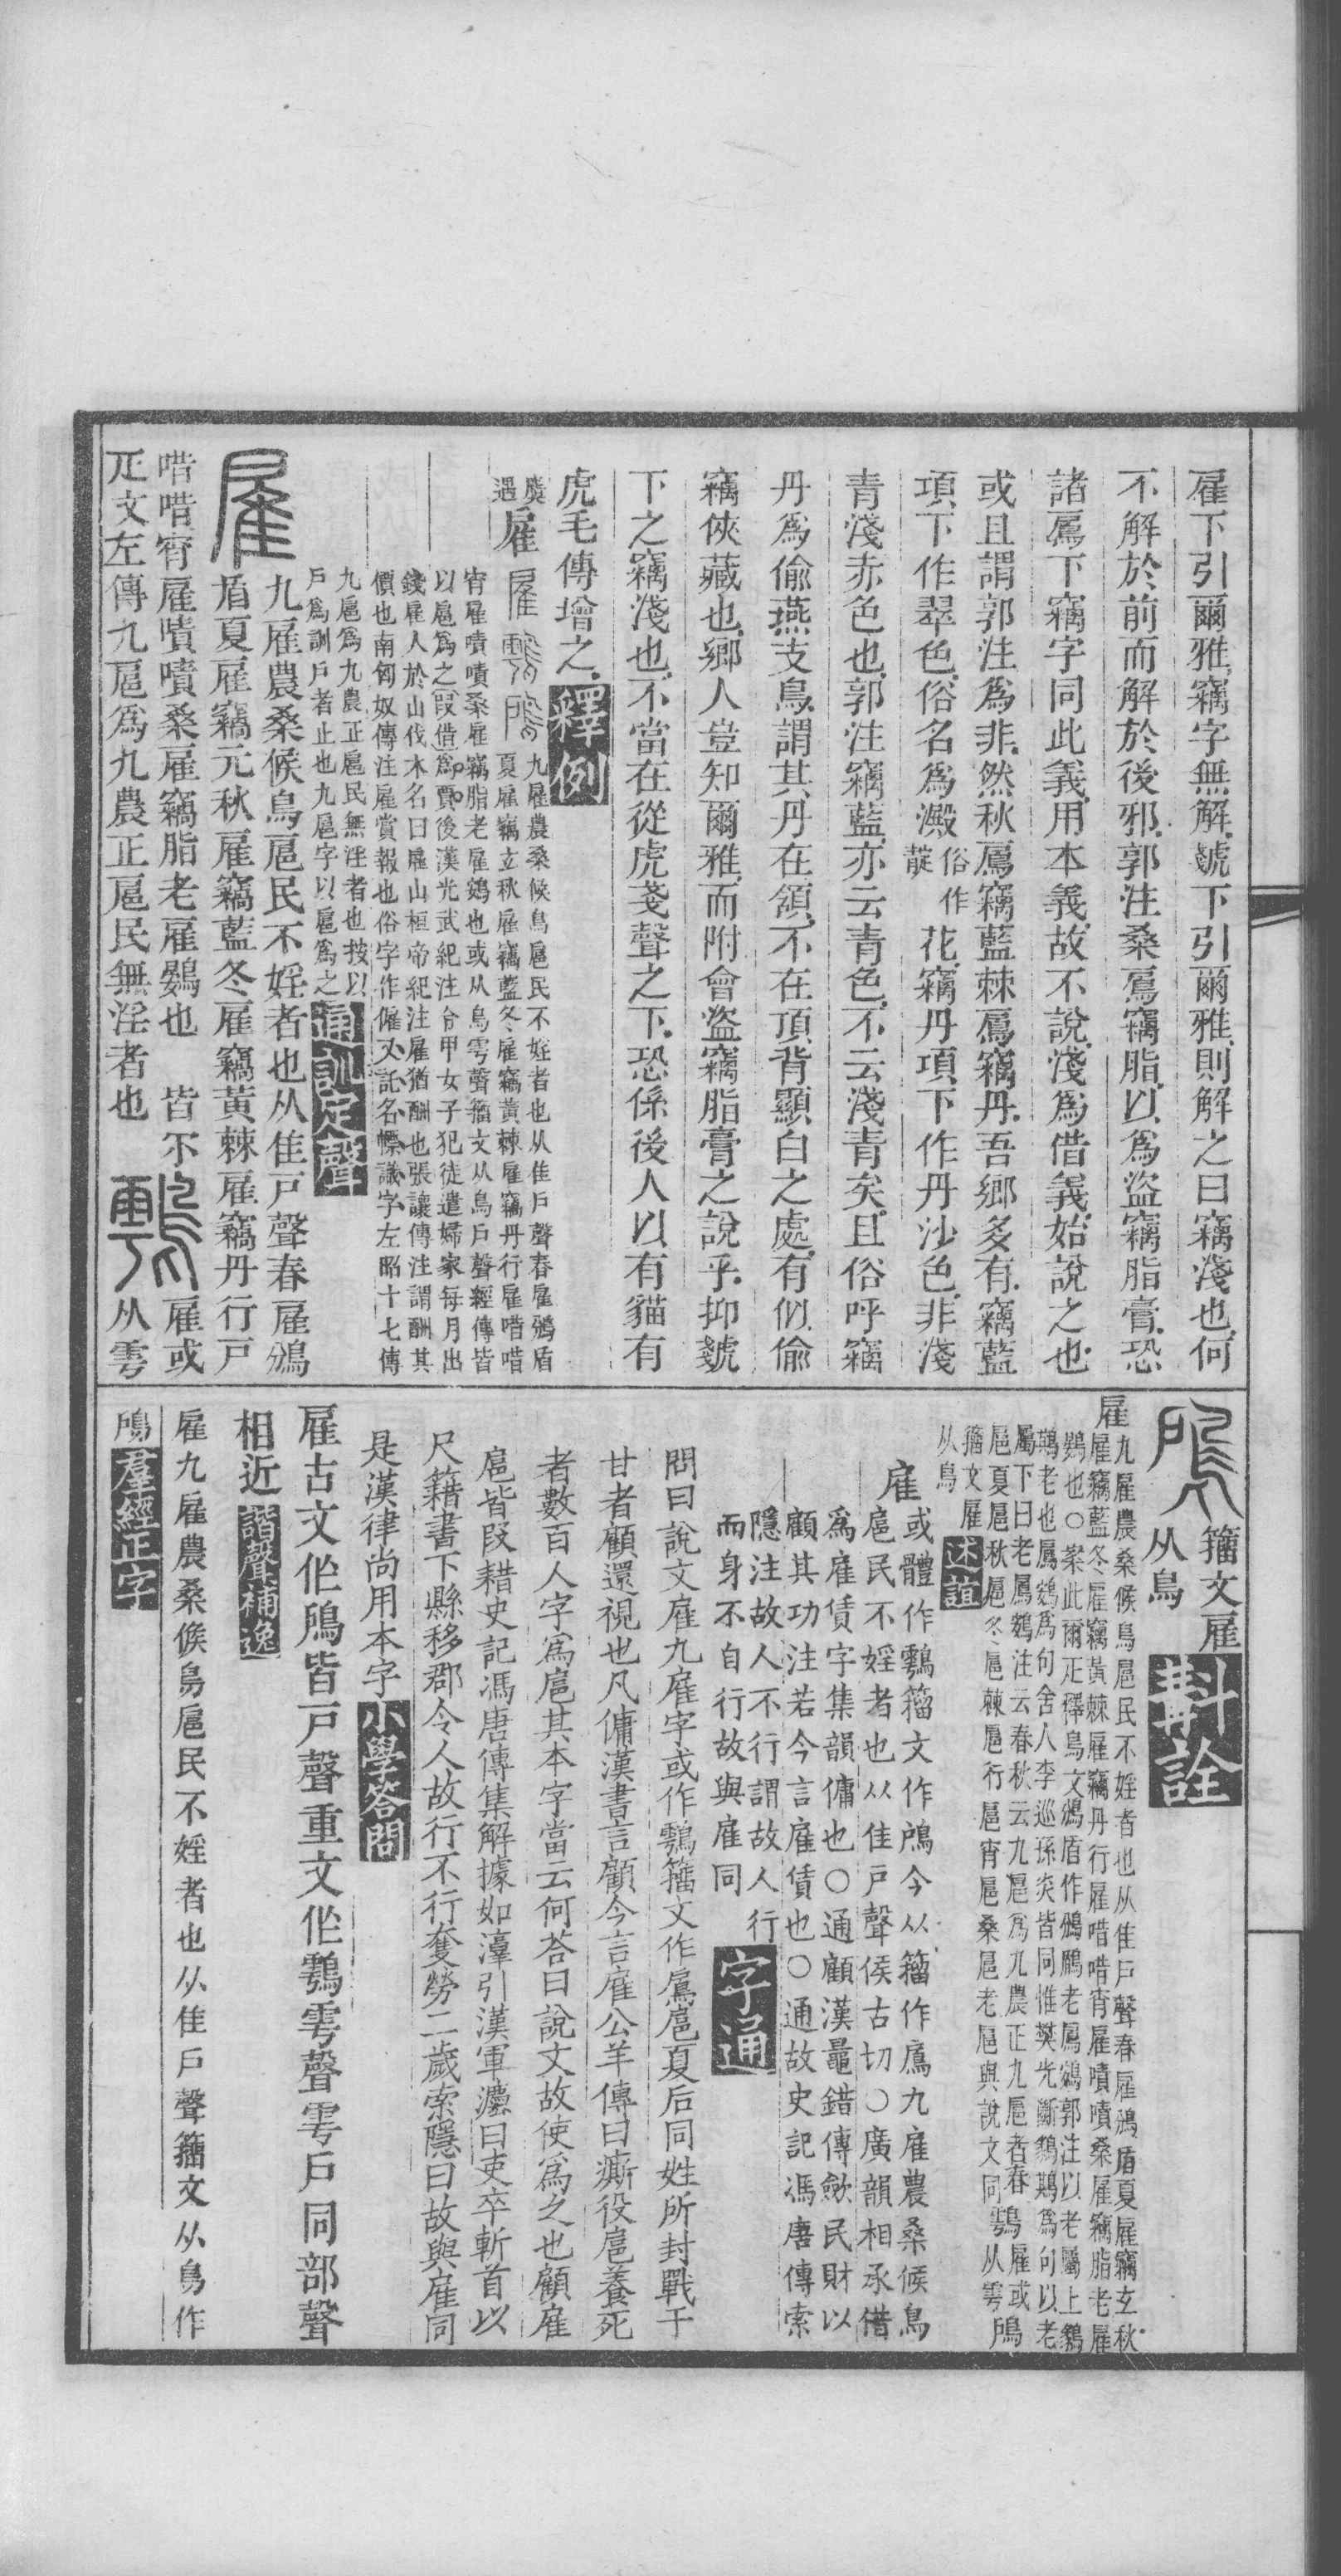 雇下引爾雅竊字無解虦下引爾雅則解之曰竊淺也何
不解於前而解於後邪郭注桑鳸竊脂以爲盜竊脂膏恐
諸鳸下竊字同此義用本義故不說淺爲借義始說之也
或且謂郭注爲非然秋鳸竊藍棘鳸竊丹吾鄉多有竊藍
項下作翠色俗名爲澱俗作靛花竊丹項下作丹沙色非淺
青淺赤色也郭注竊藍亦云青色不云淺青矣且俗呼竊
丹爲偷燕支鳥謂其丹在頷不在頂背顯白之處有似偷
竊俠藏也鄉人豈知爾雅而附會盜竊脂膏之說乎抑虦
下之竊淺也不當在從虎戔聲之下恐係後人以有貓有
虎毛傳增之釋例
虞過雇
九雇農桑候鳥扈民不婬者也从隹戶聲春雇鳻盾
夏雇竊玄秋雇竊藍冬雇竊黃棘雇竊丹行雇唶唶
宵雇嘖嘖桑雇竊脂老雇鷃也或从鳥雩聲籀文从鳥戶聲經傳皆
以扈爲之叚借爲賈後漢光武紀注令甲女子犯徒遣歸家每月出
錢雇人於山伐木名曰雇山桓帝紀注雇猶酬也張讓傳注謂酬其
價也南匈奴傳注雇賞報也俗字作僱又託名幖識字左昭十七傳
九扈爲九農正扈民無淫者也按以
戶爲訓戶者止也九扈字以扈爲之通訓定聲
雇
九雇農桑候鳥扈民不婬者也从隹戶聲春雇鳻
盾夏雇竊元秋雇竊藍冬雇竊黃棘雇竊丹行戶
唶唶宵雇嘖嘖桑雇竊脂老雇鷃也 皆不雇或
疋文左傳九扈爲九農正扈民無淫者也从雩
籀文雇
从鳥斠詮
雇九雇農桑候鳥扈民不婬者也从隹戶聲春雇鳻盾夏雇竊玄秋
雇竊藍冬雇竊黃棘雇竊丹行雇唶唶宵雇嘖嘖桑雇竊脂老雇
鷃也○案此爾疋釋鳥文鳻盾作鳻鶞老鳸鷃郭注以老屬上鷃
鶞老也鳸鷃爲句舍人李巡孫炎皆同惟樊光斷鶞爲句以老
屬下曰老鳸鷃注云春秋云九扈爲九農正九扈者春
扈夏扈秋扈冬扈棘扈行扈宵扈桑扈老扈與說文同鶚雇或从雩鳸
籀文雇
从鳥述誼
雇或體作䨼籀文作鳸今从籀作鳸九雇農桑候鳥
扈民不婬者也从隹戶聲侯古切○廣韻相承借
爲雇賃字集韻傭也○通顧漢鼂錯傳歛民財以
顧其功注若今言雇賃也○通故史記馮唐傳索
隱注故人不行謂故人行
而身不自行故與雇同字通
問曰說文雇九雇字或作䨼籀文作鳸扈夏后同姓所封戰于
甘者顧還視也凡傭漢書言顧今言雇公羊傳曰廝役扈養死
者數百人字爲扈其本字當云何荅曰說文故使爲之也顧雇
扈皆叚耤史記馮唐傳集解據如淳引漢軍灋曰吏卒斬首以
尺籍書下縣移郡令人故行不行奪勞二歲索隱曰故與雇同
是漢律尚用本字小學答問
雇古文作鳸皆戶聲重文作䨼雩聲雩戶同部聲
相近諧聲補逸
雇九雇農桑候鳥扈民不婬者也从隹戶聲籀文从鳥作
鳸羣經正字